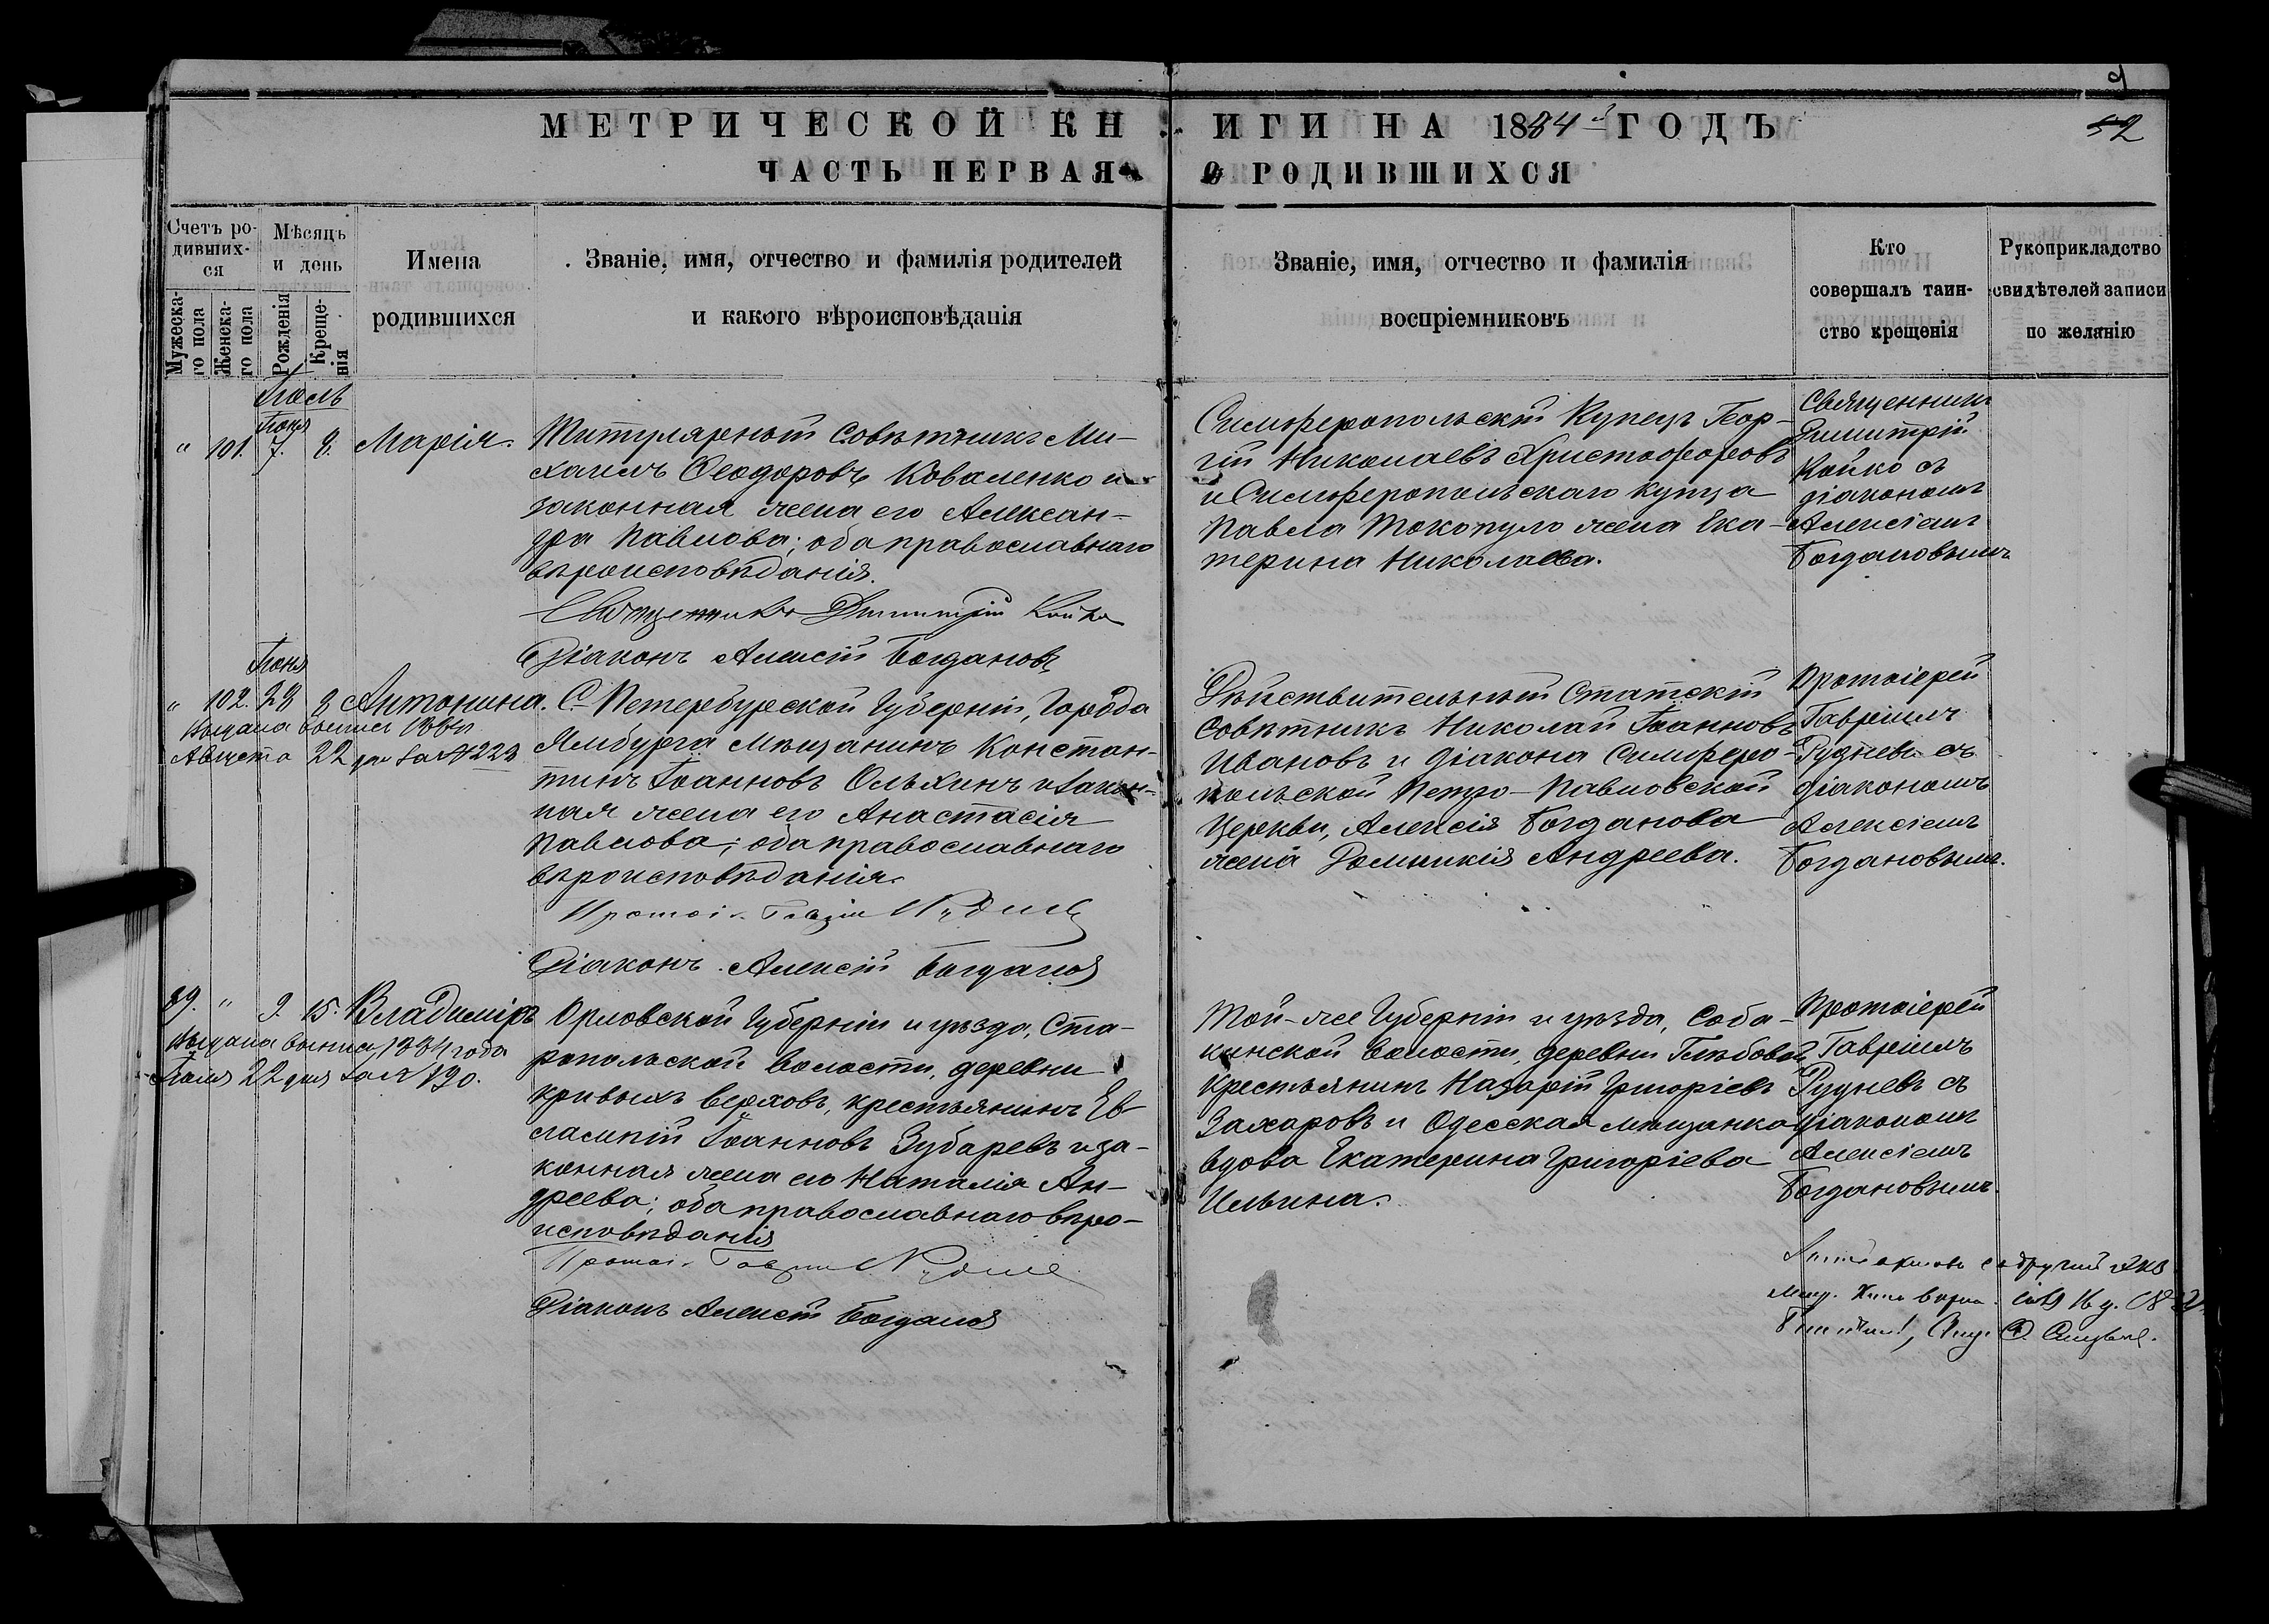 9
МЕТРИЧЕСКОЙ КНИГИ НА 1884й ГОДЪ
52
ЧАСТЬ ПЕРВАЯ О РОДИВШИХСЯ
Счетъ ро-
дивших-
ся
Мужеска-
го пола
Женска-
го пола
Мѣсяцъ
и день
Рожденія
Креще-
нія
Имена
родившихся
Званіе, имя, отчество и фамилія родителей
и какого вѣроисповѣданія
Званіе, имя, отчество и фамилія
воспріемниковъ
Кто
совершалъ таин-
ство крещенія
Рукоприкладство
свидѣтелей записи
по желанію
Іюль
" 101. 7. 8. Марія.
Титулярный Совѣтникъ Ми-
хаилъ Ѳеодоровъ Коваленко и
законная жена его Алексан-
дра Павлова; оба православнаго
вѣроисповѣданія.
Священникъ Димитрій Койко
Діаконъ Алексій Богдановъ
Симферопольскій Купецъ Геор-
гій Николаевъ Христофоровъ
и Симферопольскаго купца
Павла Токопуло жена Ека-
терина Николаева.
Священникъ
Димитрій
Койко съ
діакономъ
Алексіемъ
Богдановымъ
Іюня
" 102. 28 8 Антонина.
Выдана выпись 1884
Августа 22 дня за № 223
С. Петербургской Губерніи, Города
Ямбурга мѣщанинъ Констан-
тинъ Іоанновъ Ольхинъ и закон-
ная жена его Анастасія
Павлова; оба православнаго
вѣроисповѣданія.
Протоі. Гавріи Рудневъ
Діаконъ Алексій Богдановъ
Дѣйствительный Статскій
Совѣтникъ Николай Іоанновъ
Ивановъ и діакона Симферо-
польской Петро-Павловской
Церкви, Алексія Богданова
жена Домникія Андреева.
Протоіерей
Гавріилъ
Рудневъ съ
діакономъ
Алексіемъ
Богдановымъ.
89. " 9. 15. Владиміръ
Выдана выпись 1884 года
Іюля 22 дня за № 190.
Орловской Губерніи и уѣзда, Ста-
ропольской волости, деревни
Кривыхъ Верховъ, крестьянинъ Ев-
лампій Іоанновъ Зубаревъ и за-
конная жена его Наталія Ан-
дреева; оба православнаго вѣро-
исповѣданія
Протоі. Гавріи Рудневъ
Діаконъ Алексій Богдановъ
Той-же Губерніи и уѣзда, Соба-
кинской волости, деревни Глѣбовой
Крестьянинъ Назарій Григорьевъ
Захаровъ и Одесская мѣщанка
вдова Екатерина Григоріева
Ильина.
Протоіерей
Гавріилъ
Рудневъ съ
діакономъ
Алексіемъ
Богдановымъ.